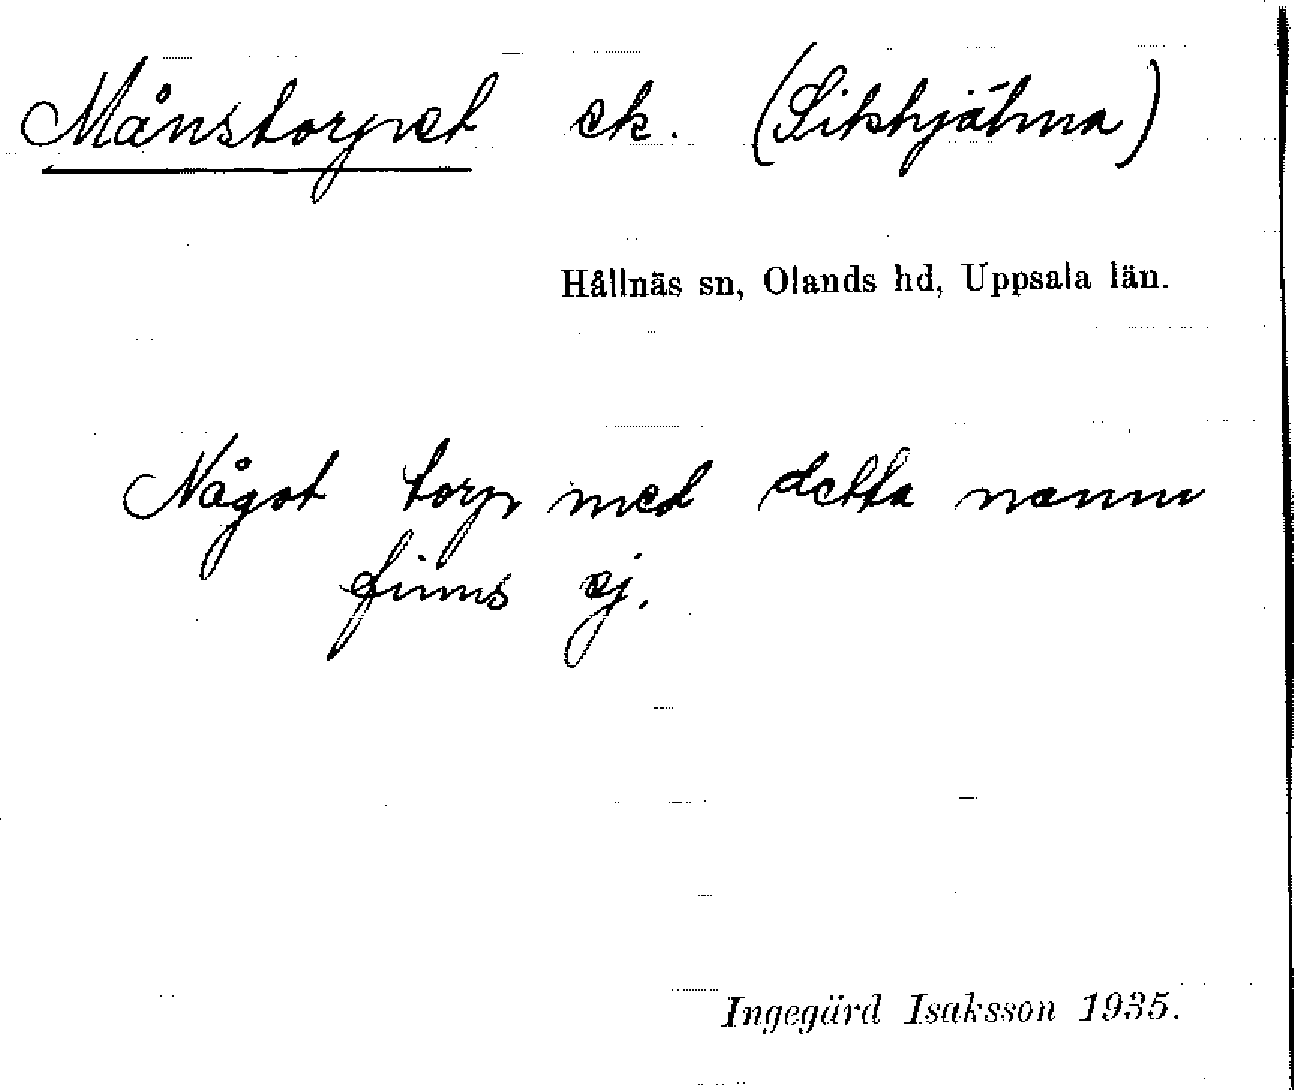 Månstorpet ek. (Sikhjälma)
Hållnäs sn, Olands hd, Uppsala län.
Något torp med detta namn
finns ej.
Ingegärd Isaksson 1935.